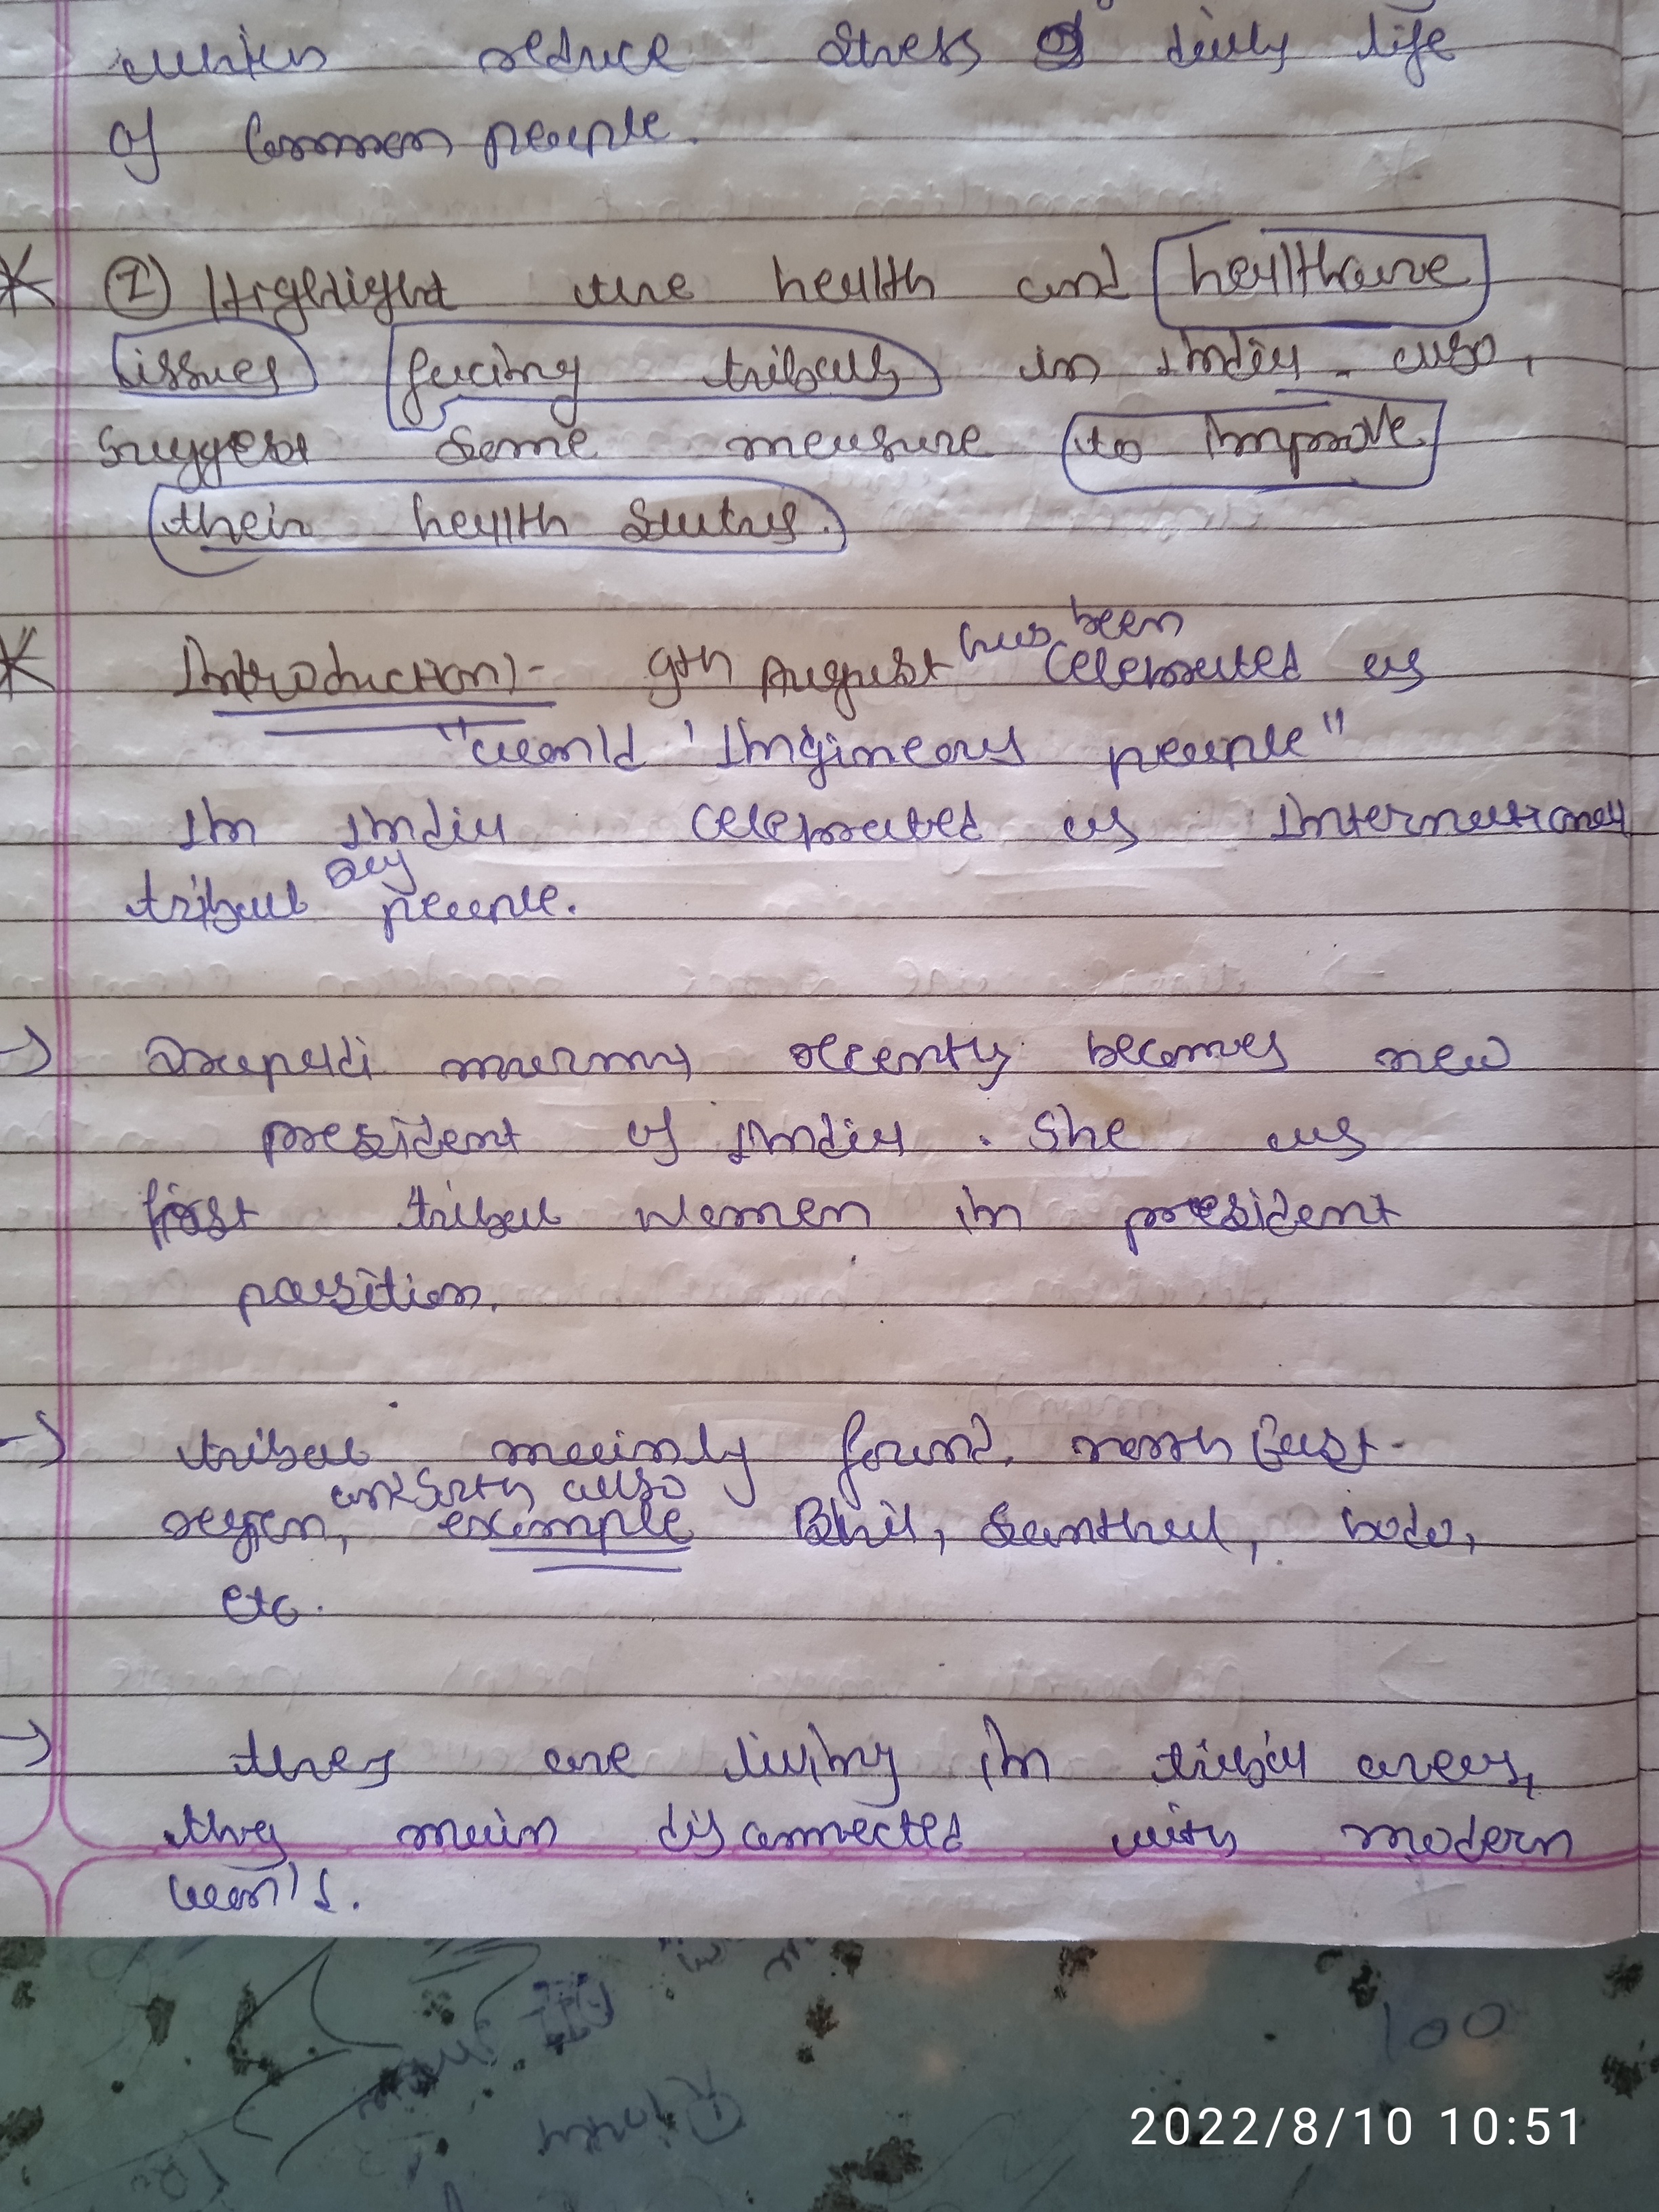 which reduce stress of daily life
of common people.
① Highlight the health and healthcare
issues facing tribals in India. also,
suggest some measure to improve
their health status.
Introduction:- 9th August has been celebrated as
"world Ingineous people"
In India celebrated as International
tribal day people.
→ Draupadi murmu recently becomes new
president of India. She as
first tribal women in president
position.
→ tribal mainly found, north East
region, and South also example Bhil, Santhal, bodo,
etc.
→ they are living in tribal areas,
they main disconnected with modern
world.
100
2022/8/10 10:51